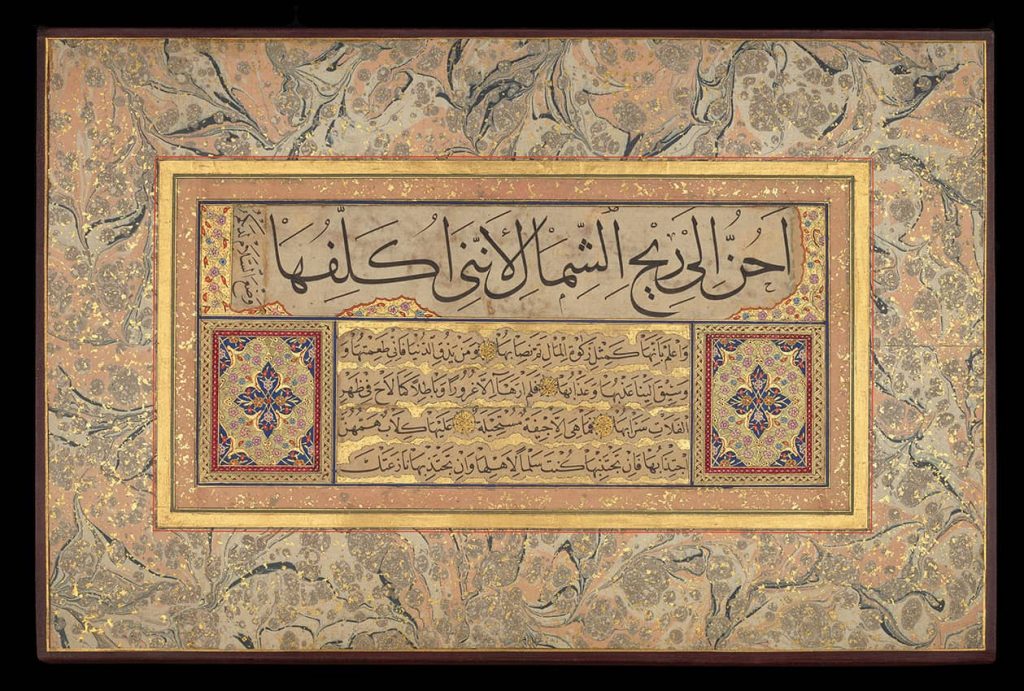 اَحُنُّ اِلىَ رِيْحِ الشِّمَالِ لِاَنَّنِى اُكَلِّفُهَا
وَاعلم بانها كمثل زكوة المال تم نصابها ومن يذق الدنيا فانى طعمتها و
وسيق الينا عذبها وعذابها فلم ارها الا غرورا وباطلا كما لاح فى ظهر
الفلات سرابها فما هى الا جيفة مستحيلة عليها كلاب همهن
اجتذابها فان تجتنبها كنت سلما لاهلها وان تجتذبها نازعتك